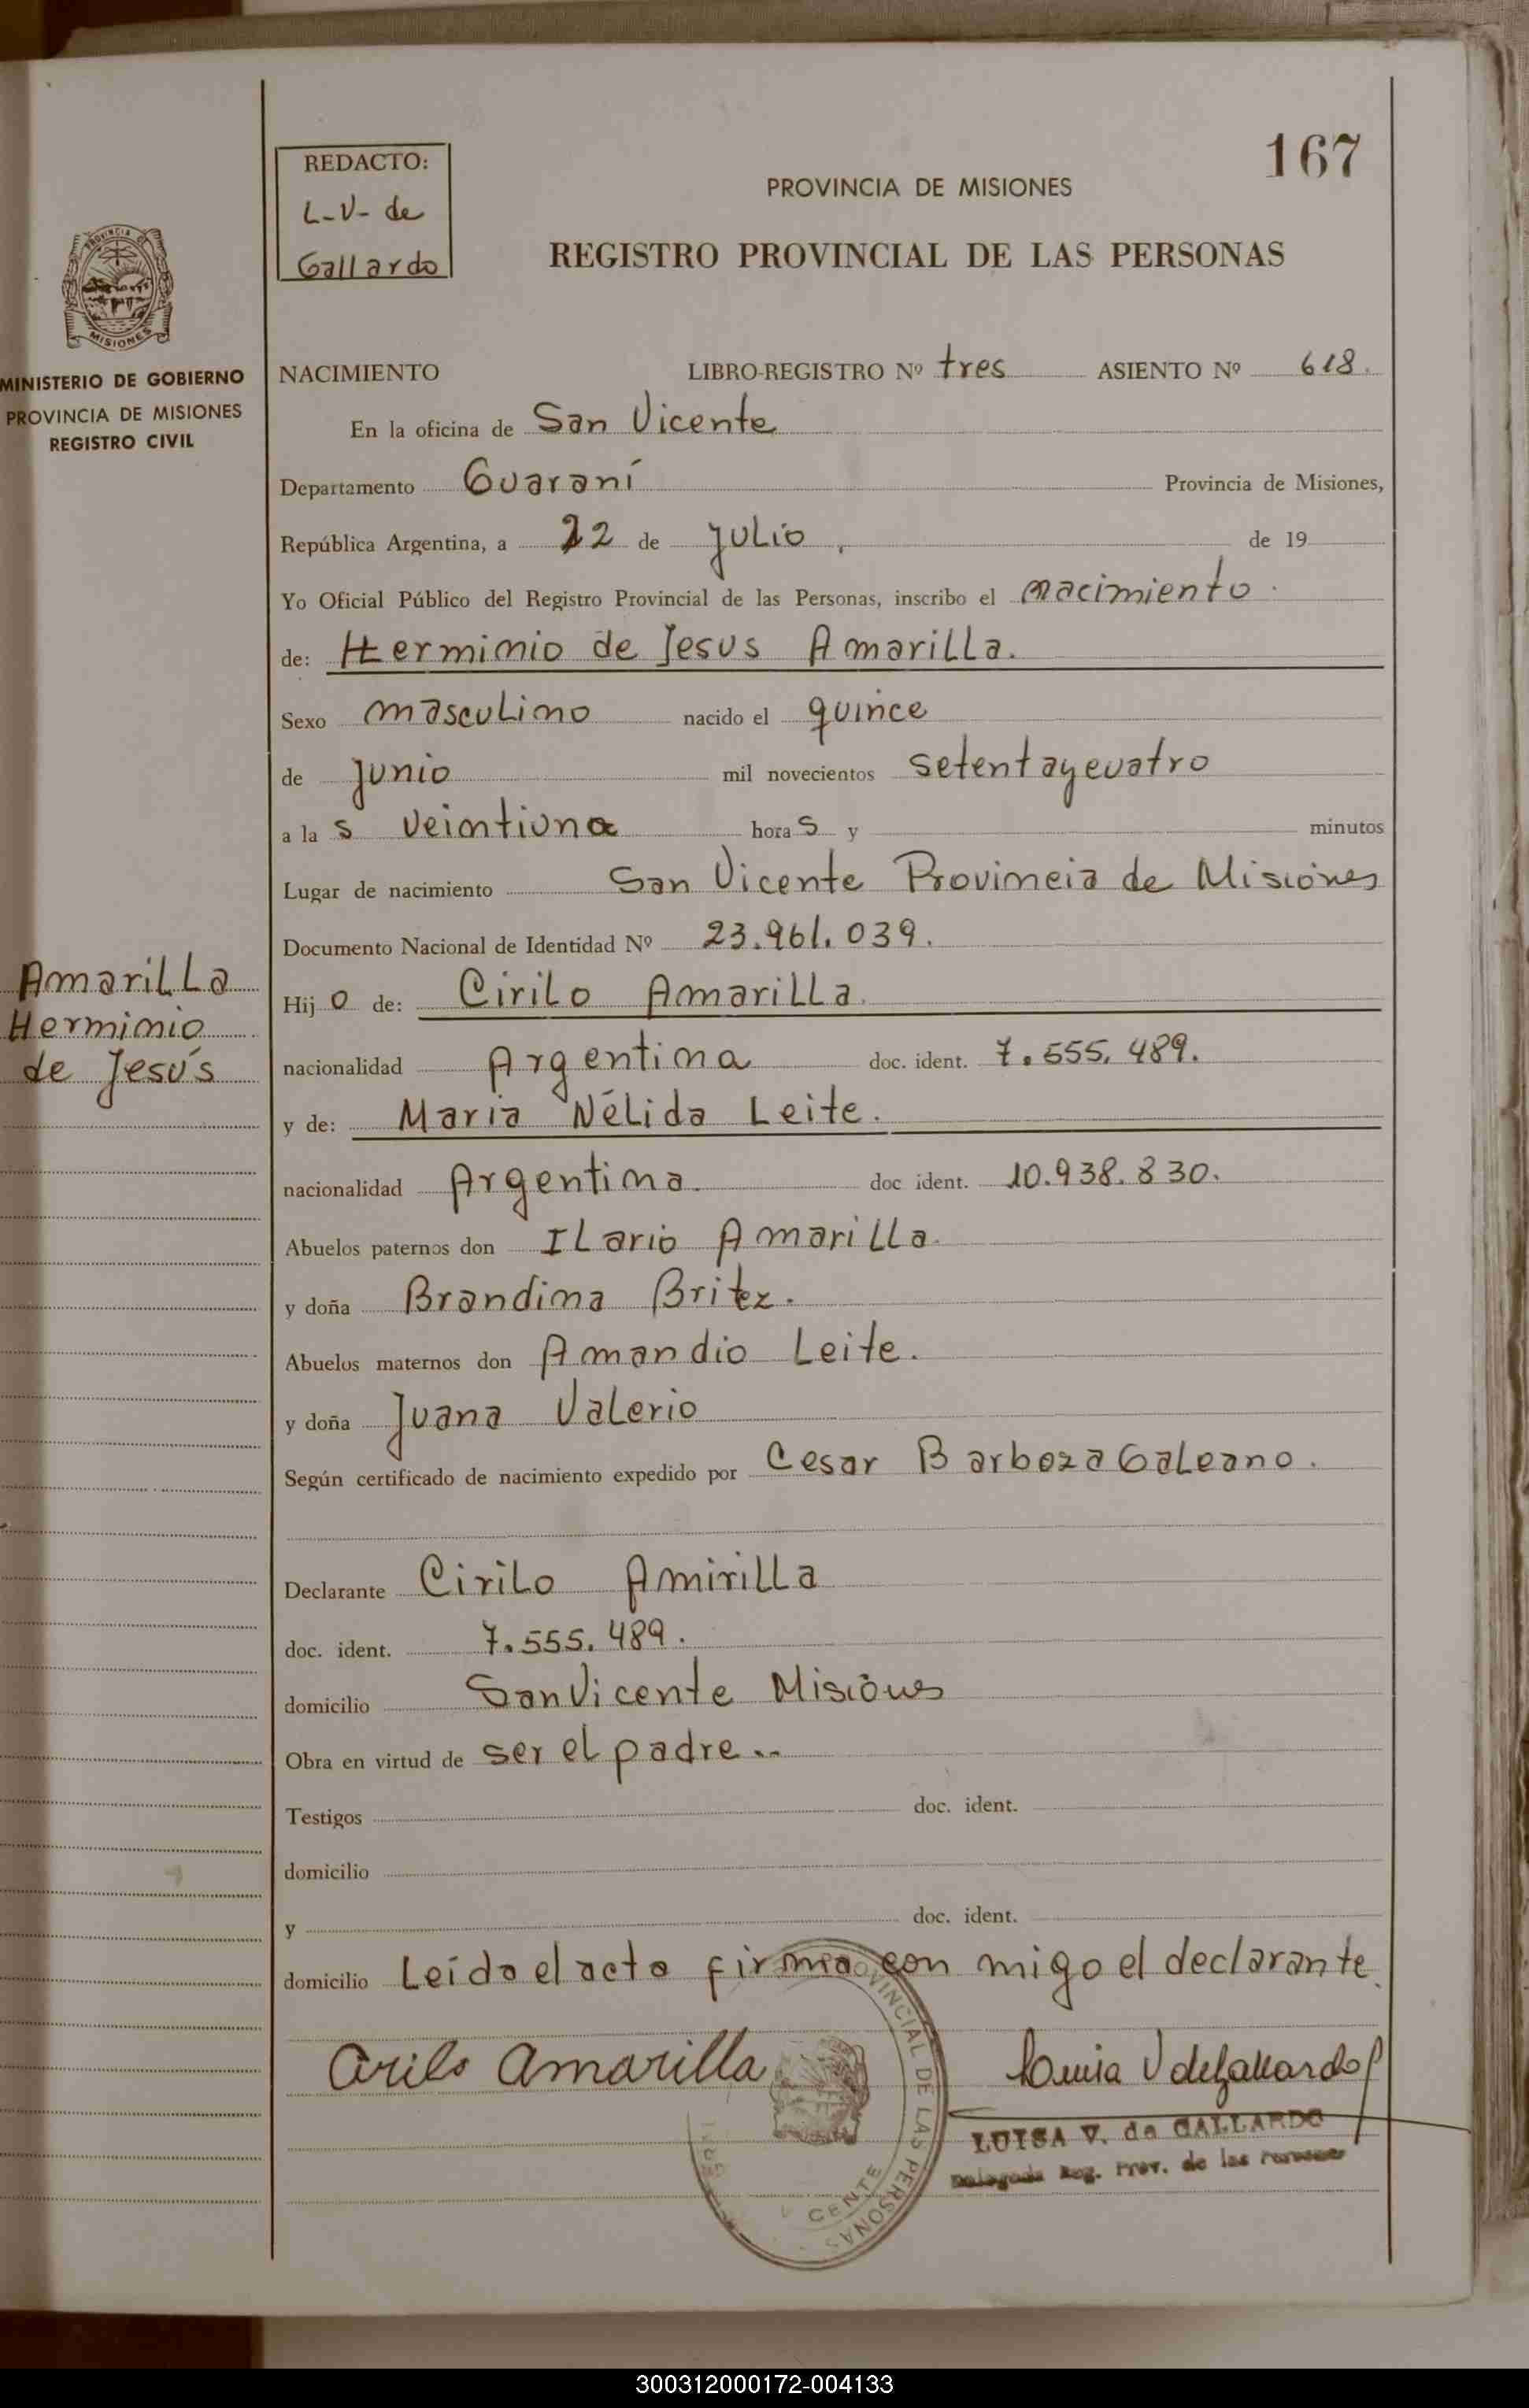 167
REDACTO:
L-V- de
Gallardo
PROVINCIA DE MISIONES
REGISTRO PROVINCIAL DE LAS PERSONAS
PROVINCIA DE
MISIONES
MINISTERIO DE GOBIERNO
PROVINCIA DE MISIONES
REGISTRO CIVIL
NACIMIENTO LIBRO-REGISTRO Nº tres ASIENTO Nº 618.
En la oficina de San Vicente
Departamento Guaraní Provincia de Misiones,
República Argentina, a 22 de julio, de 19
Yo Oficial Público del Registro Provincial de las Personas, inscribo el nacimiento.
de: Herminio de Jesus Amarilla.
Sexo masculino nacido el quince
de junio mil novecientos setentaycuatro
a las veintiuna horas y minutos
Lugar de nacimiento San Vicente Provincia de Misiones
Documento Nacional de Identidad Nº 23.961.039.
Amarilla
Herminio
de Jesús
Hijo de: Cirilo Amarilla.
nacionalidad Argentina doc. ident. 7.555.489.
y de: Maria Nélida Leite.
nacionalidad Argentina. doc ident. 10.938.830.
Abuelos paternos don Ilario Amarilla.
y doña Brandina Britez.
Abuelos maternos don Amandio Leite.
y doña Juana Valerio
Según certificado de nacimiento expedido por Cesar Barboza Galeano.
Declarante Cirilo Amirilla
doc. ident. 7.555.489.
domicilio San Vicente Misiones
Obra en virtud de ser el padre..
Testigos doc. ident.
domicilio
y doc. ident.
domicilio Leida el acta firma con migo el declarante.
Cirilo Amarilla
Luisa V de Gallardo
LUISA V. de GALLARDO
Delegada Reg. Prov. de las Personas
PROVINCIAL DE LAS PERSONAS
CENTE
300312000172-004133